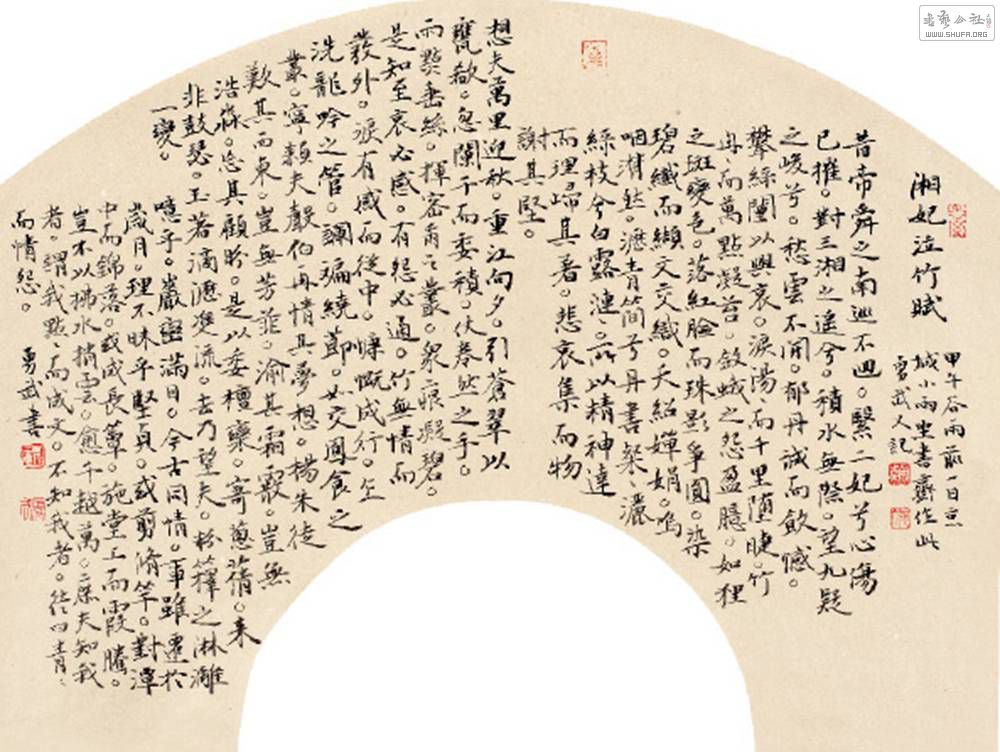 湘妃泣竹賦
甲午谷雨前一日京
城小雨坐書齋作此
勇武人記
昔帝舜之南巡不迴。繄二妃兮心傷
已摧。對三湘之遙兮。積水無際。望九疑
之峻兮。愁雲不開。郁丹誠而飲憾。
攀綠闈以興哀。淚湯而千里墮睫。竹
冉而萬點凝苔。斂蛾之怨盈臆。如狸
之斑變色。落紅臉而珠影爭圓。染
碧纖而纈文交織。夭紹嬋娟。嗚
咽潸然。瀝青簡兮丹書粲〻灑
綠枝兮白露漣〻所以精神達
而理啼其著。悲哀集而物
謝其堅。
想夫萬里迎秋。重江向夕。引蒼翠以
歔。忽闌干而委積。伏拳然之手。
而垂絲。揮密之叢。衆痕凝碧。
是知至哀必感。有怨必通。竹無情而
發外。淚有感而從中。慷慨成行。空
洗龍吟之管。斕斒繞節。如交鳳食之
叢。寧類夫聲伯再情其夢想。楊朱徒
歎其而東。豈無芳菲。渝其霜霰。豈無
浩淼。忘其顧盼。是以委檀欒。寄蔥蒨。來
非鼓瑟。玉箸滴瀝雙流。去乃望夫。粉籜之淋灕
一變。
噫乎。巖巒滿目。今古同情。事雖遷於
歲月。理不昧乎堅貞。或剪脩竿。對潭
中而錦落。或成長簟。施堂上而霞騰。
豈不以拂水捎雲。愈千越萬。庶夫知我
者。謂我點〻而成文。不知我者。終四青〻
而情怨。
勇武書
書藝公社
WWW.SHUFA.ORG